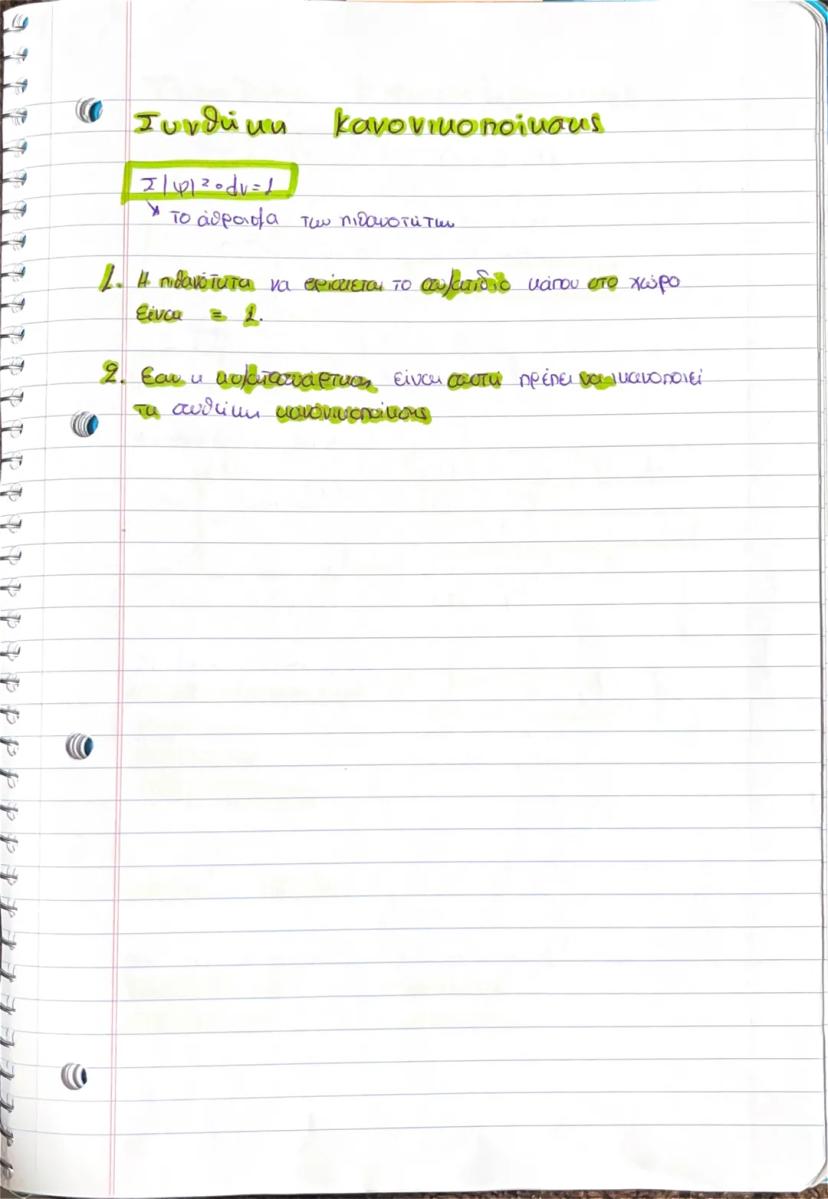 Συνθήκη κανονικοποίησης
Σ|ψ|²∘dv=1
↘ το άθροισμα των πιθανοτήτων
1. Η πιθανότητα να βρίσκεται το σωματίδιο κάπου στο χώρο
είναι = 1.
2. Εαν η κυματοσυνάρτηση είναι σωστή πρέπει να ικανοποιεί
τη συνθήκη κανονικοποίησης